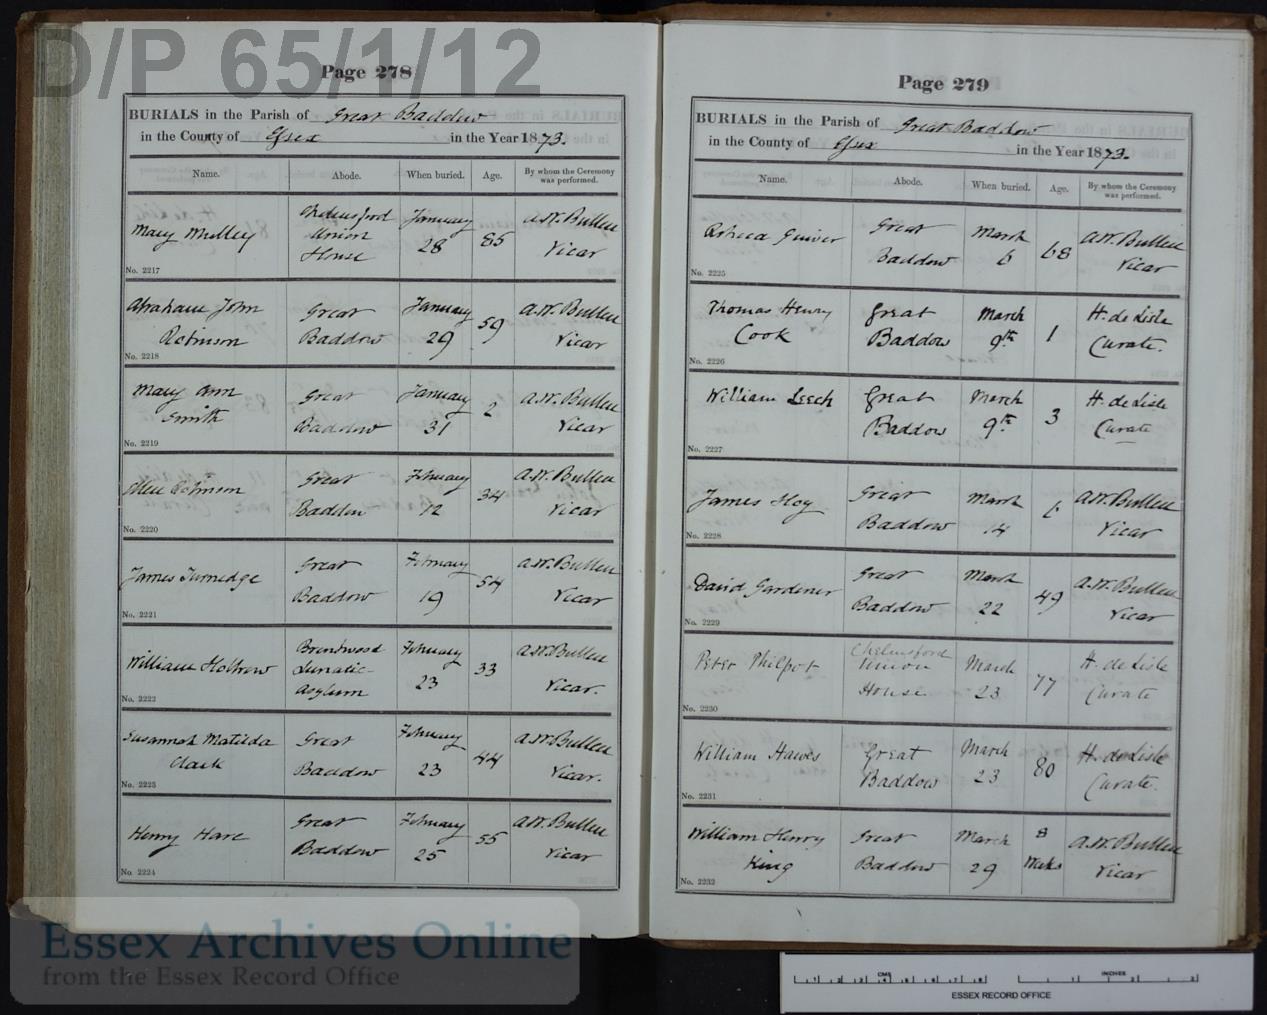 D/P 65/1/12
Page 278
BURIALS in the Parish of Great Baddow
in the County of Essex in the Year 1873.
Name. Abode. When buried. Age. By whom the Ceremony was performed.
Mary Mulley Chelmsford Union House January 28 85 A.W. Bullen Vicar
No. 2217
Abraham John Robinson Great Baddow January 29 59 A.W. Bullen Vicar
No. 2218
Mary Ann Smith Great Baddow January 31 2 A.W. Bullen Vicar
No. 2219
Ellen Great Baddow February 12 34 A.W. Bullen Vicar
No. 2220
James Turnedge Great Baddow February 19 54 A.W. Bullen Vicar
No. 2221
William Brentwood Lunatic Asylum February 23 33 A.W. Bullen Vicar.
No. 2222
Susannah Matilda Clark Great Baddow February 23 44 A.W. Bullen Vicar.
No. 2223
Henry Hare Great Baddow February 25 55 A.W. Bullen Vicar
No. 2224
Page 279
BURIALS in the Parish of Great Baddow
in the County of Essex in the Year 1873.
Name. Abode. When buried. Age. By whom the Ceremony was performed.
Great Baddow March 6 68 A.W. Bullen Vicar
No. 2225
Thomas Henry Cook Great Baddow March 9th 1 H. de Lisle Curate.
No. 2226
William Leech Great Baddow March 9th 3 H. de Lisle Curate
No. 2227
James Hoy Great Baddow March 14 A.W. Bullen Vicar
No. 2228
David Gardener Great Baddow March 22 49 A.W. Bullen Vicar
No. 2229
Peter Philpot Chelmsford Union House March 23 77 H. de Lisle Curate
No. 2230
William Hawes Great Baddow March 23 80 H. de Lisle Curate.
No. 2231
William Henry King Great Baddow March 29 8 Weeks A.W. Bullen Vicar
No. 2232
Essex Archives Online
from the Essex Record Office
CMS INCHES
ESSEX RECORD OFFICE